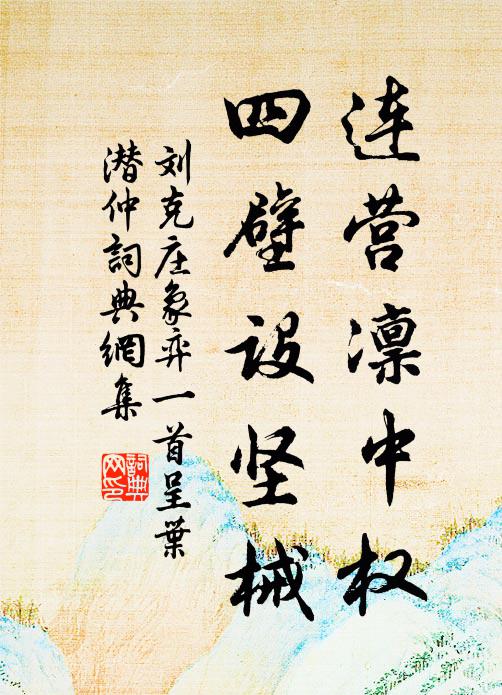 连营凛中权
四壁设坚械
刘克庄象弈一首呈葉
潜仲詞典網集
詞典
网印